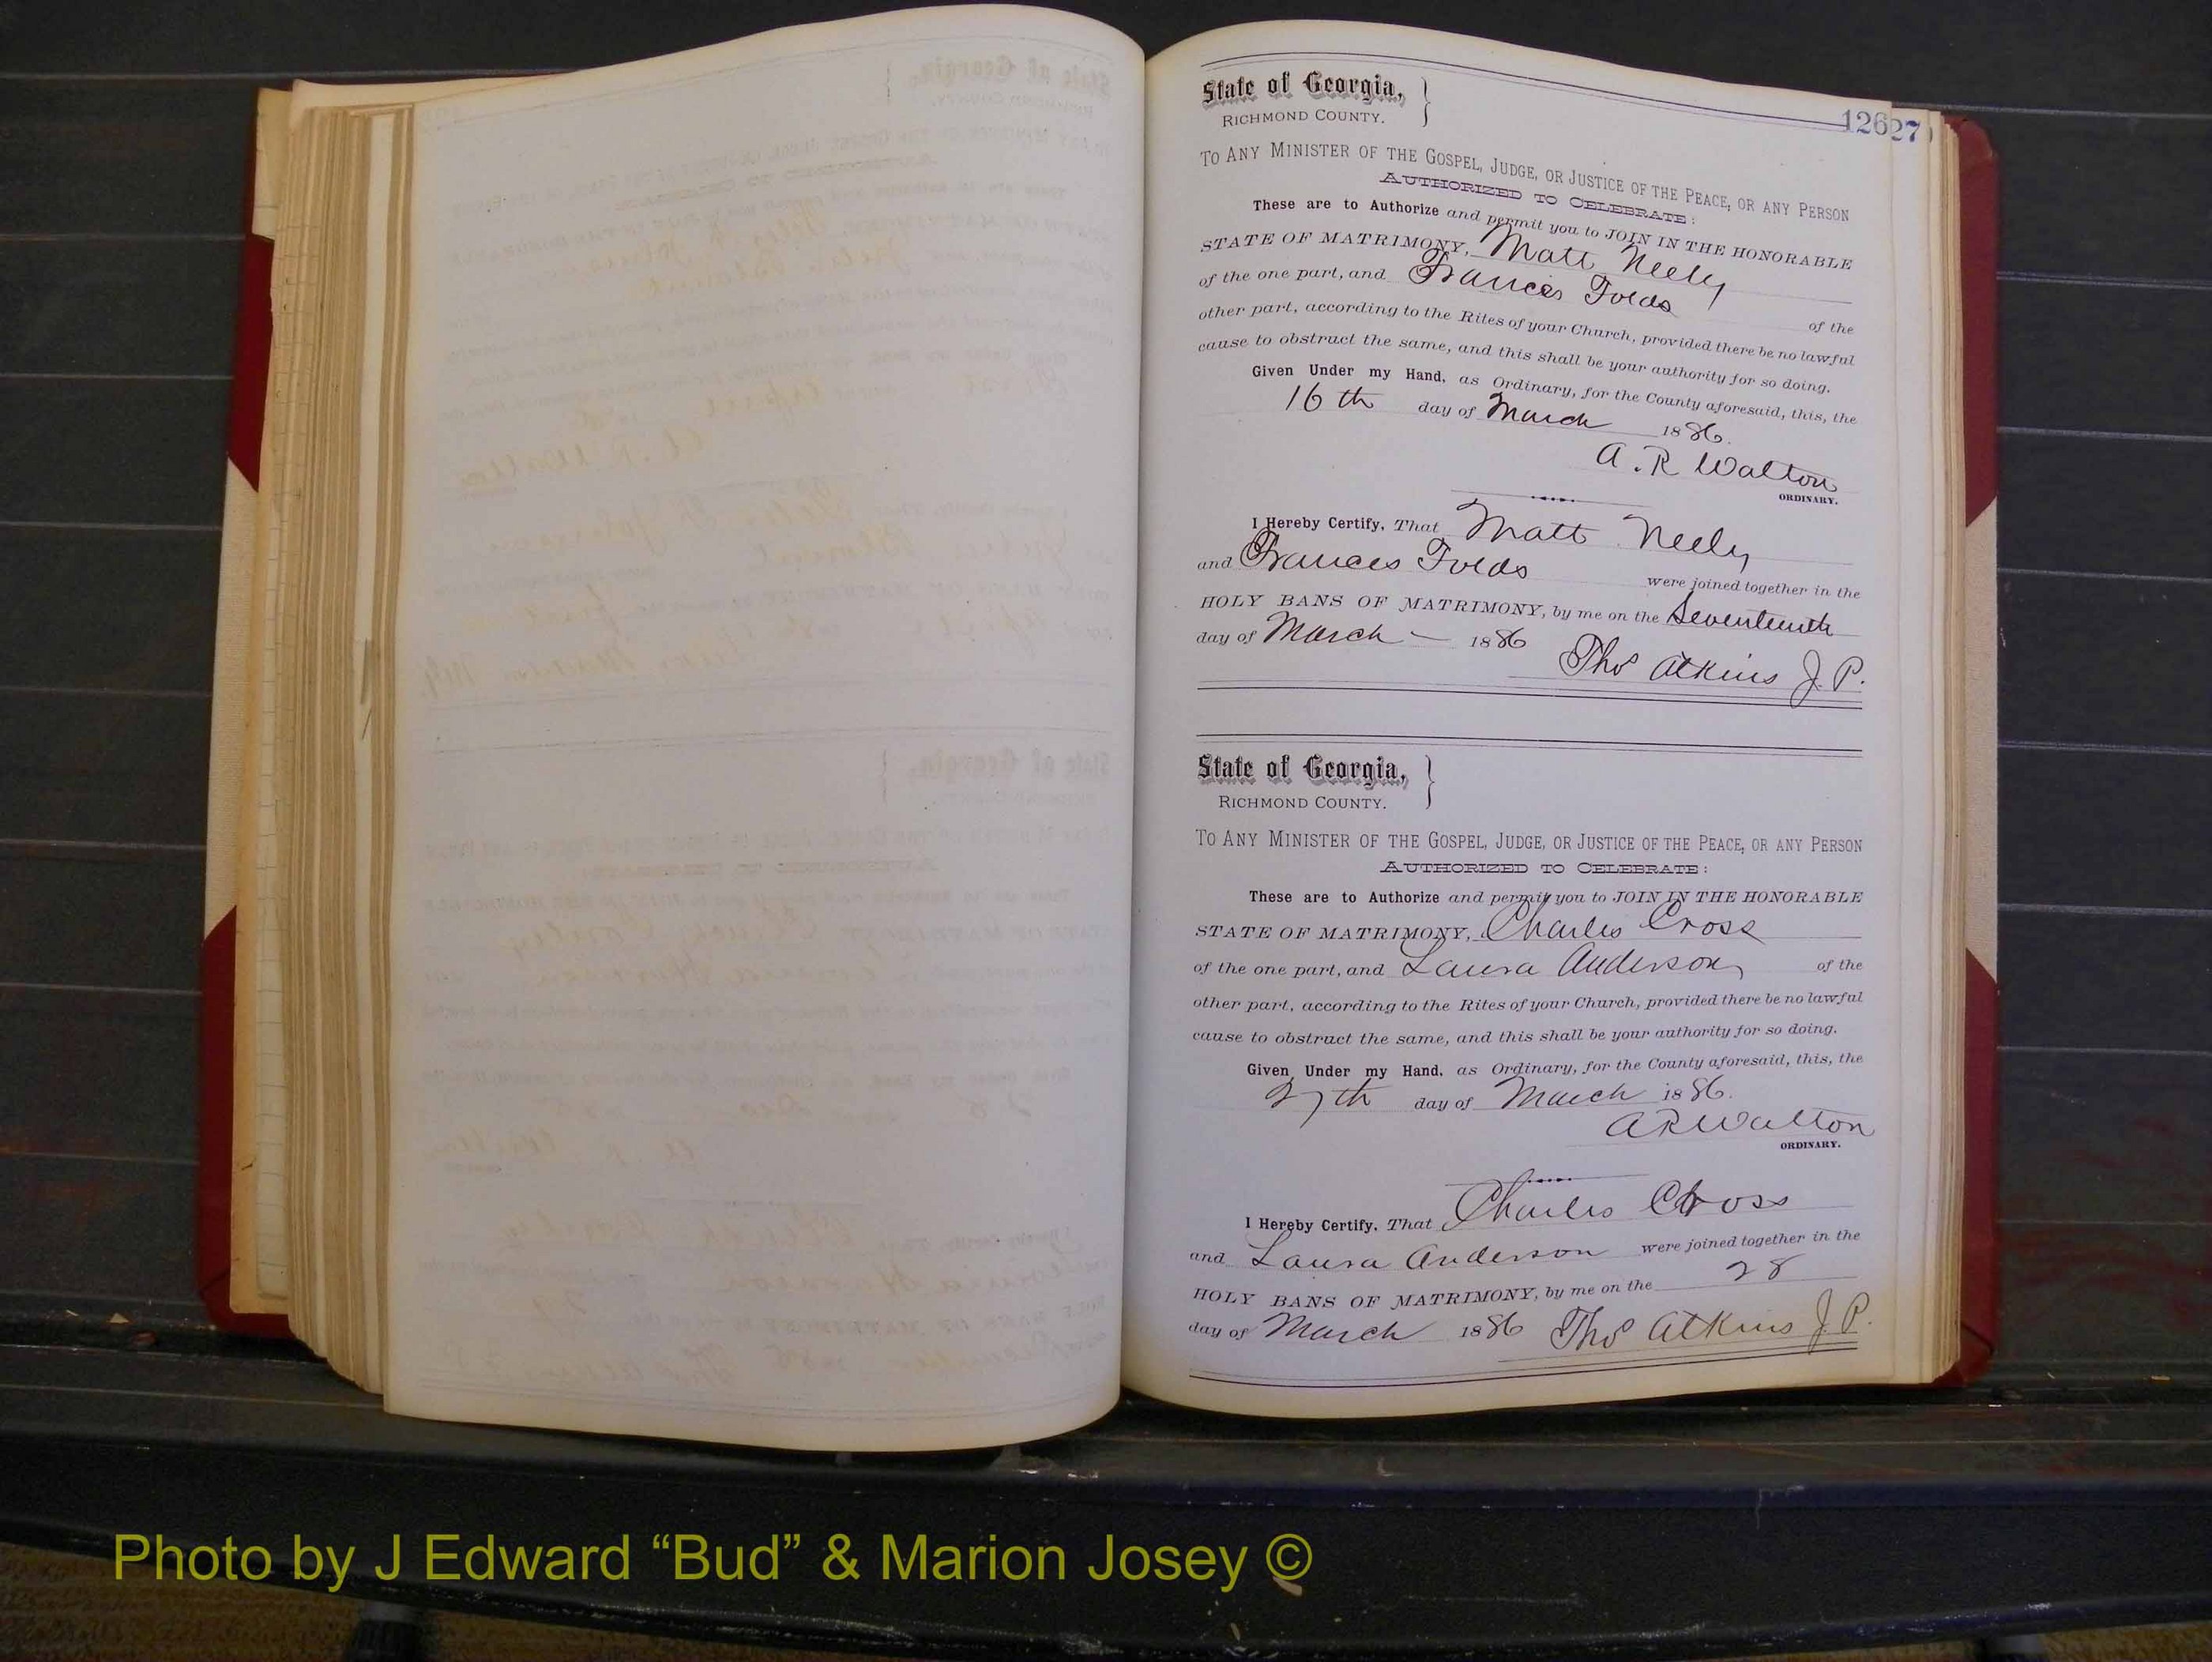 State of Georgia,
RICHMOND COUNTY.
126
27
TO ANY MINISTER OF THE GOSPEL, JUDGE, OR JUSTICE OF THE PEACE, OR ANY PERSON
AUTHORIZED TO CELEBRATE:
These are to Authorize and permit you to JOIN IN THE HONORABLE
STATE OF MATRIMONY, Matt Neely
of the one part, and Frances Folds of the
other part, according to the Rites of your Church, provided there be no lawful
cause to obstruct the same, and this shall be your authority for so doing.
Given Under my Hand, as Ordinary, for the County aforesaid, this, the
16th day of March 1886.
A. R Walton
ORDINARY.
I Hereby Certify, That Matt Neely
and Frances Folds were joined together in the
HOLY BANS OF MATRIMONY, by me on the Seventeenth
day of March — 1886
Thos Atkins J. P.
State of Georgia,
RICHMOND COUNTY.
TO ANY MINISTER OF THE GOSPEL, JUDGE, OR JUSTICE OF THE PEACE, OR ANY PERSON
AUTHORIZED TO CELEBRATE:
These are to Authorize and permit you to JOIN IN THE HONORABLE
STATE OF MATRIMONY, Charles Cross
of the one part, and Laura Anderson of the
other part, according to the Rites of your Church, provided there be no lawful
cause to obstruct the same, and this shall be your authority for so doing.
Given Under my Hand, as Ordinary, for the County aforesaid, this, the
27th day of March 1886.
A R Walton
ORDINARY.
I Hereby Certify, That Charles Cross
and Laura Anderson were joined together in the
HOLY BANS OF MATRIMONY, by me on the 28
day of March 1886 Thos Atkins J. P.
Photo by J Edward “Bud” & Marion Josey ©